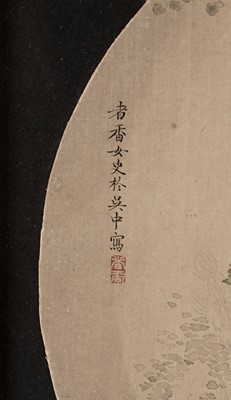 者香女史於吳中寫